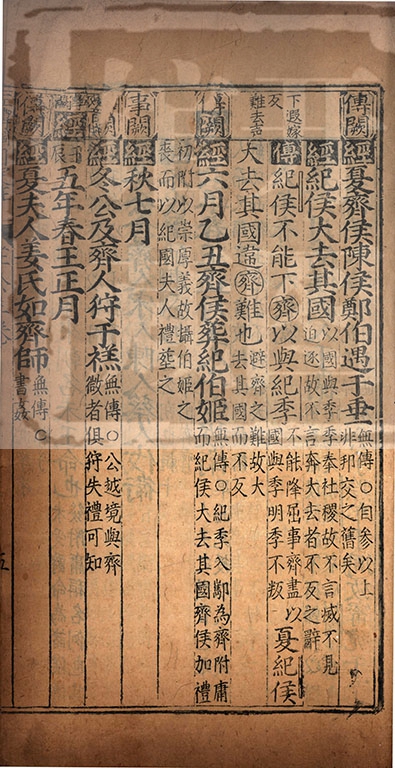 傳闕
經夏齊侯陳侯鄭伯遇于垂無傳○自參以上非邦交之舊矣
經紀侯大去其國以國與季季奉社稷故不言滅不見迫逐故不言奔大去者不反之辭
傳紀侯不能下齊以與紀季不能降屈事齊盡以國與季明季不叛夏紀侯
下遐嫁反
難去聲
大去其國違齊難也避齊之難故大去其國而不反
傳闕
經六月乙丑齊侯葬紀伯姬無傳○紀季入酅為齊附庸而紀侯大去其國齊侯加禮
初附以崇厚義故攝伯姬之喪而以紀國夫人禮葬之
事闕
經秋七月
經冬公及齊人狩于禚無傳○公越境與齊微者俱狩失禮可知
五年春王正月
傳闕
經夏夫人姜氏如齊師無傳○書姦
五